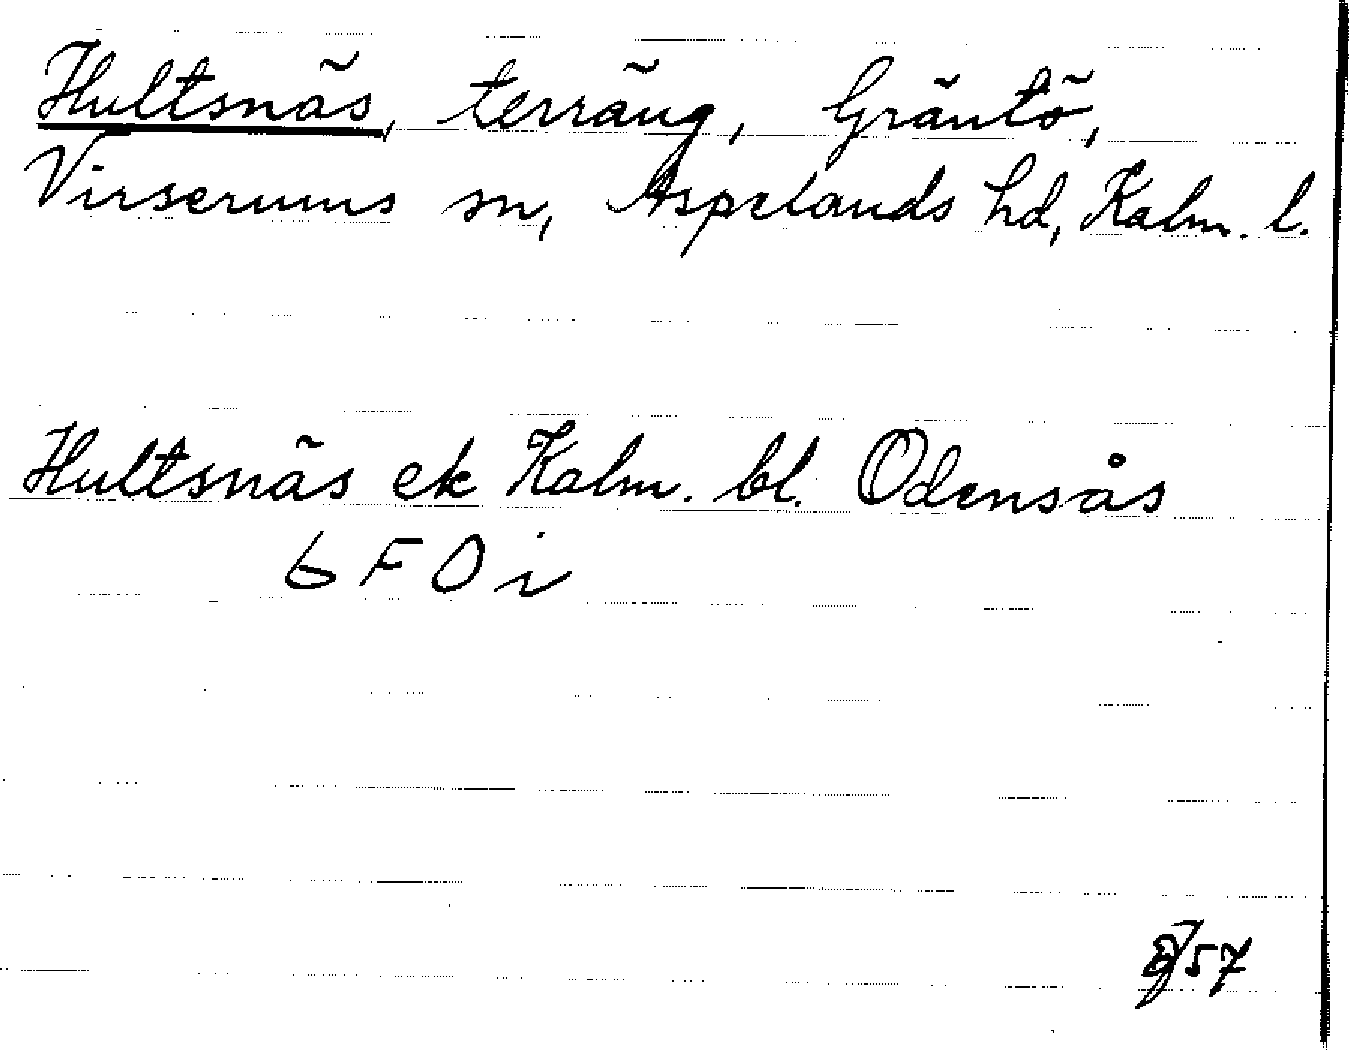 Hultsnäs, terräng, Gräntö,
Virserums sn, Aspelands hd, Kalm. l.
Hultsnäs ek Kalm. bl. Odensås
6 F O i
57